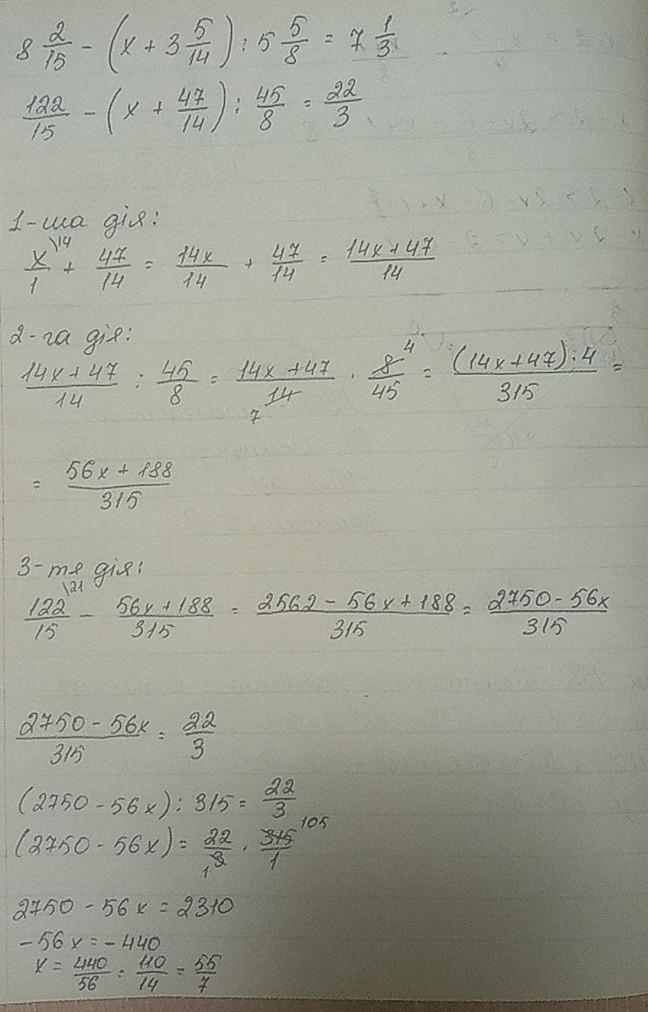 8 2/15 - (x + 3 5/14) : 5 5/8 = 7 1/3
122/15 - (x + 47/14) : 45/8 = 22/3
1-ша дія:
x/1 \14 + 47/14 = 14x/14 + 47/14 = 14x+47/14
2-га дія:
14x+47/14 : 45/8 = 14x+47/14 7 · 8/45 4 = (14x+47) · 4/315 =
= 56x+188/315
3-тя дія:
122/15 \21 - 56x+188/315 = 2562-56x+188/315 = 2750-56x/315
2750-56x/315 = 22/3
(2750-56x) : 315 = 22/3
(2750-56x) = 22/3 1 · 315/1 105
2750-56x = 2310
-56x = -440
x = 440/56 = 110/14 = 55/7